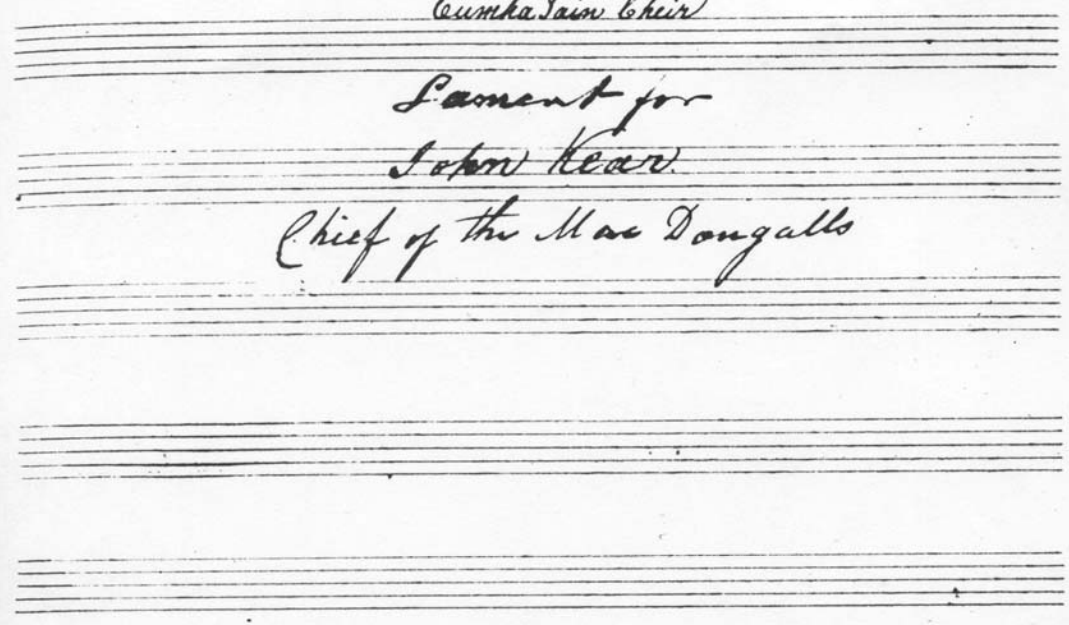 Cumha Iain Cheir
Lament for
John Kear.
Chief of the Mac Dougalls